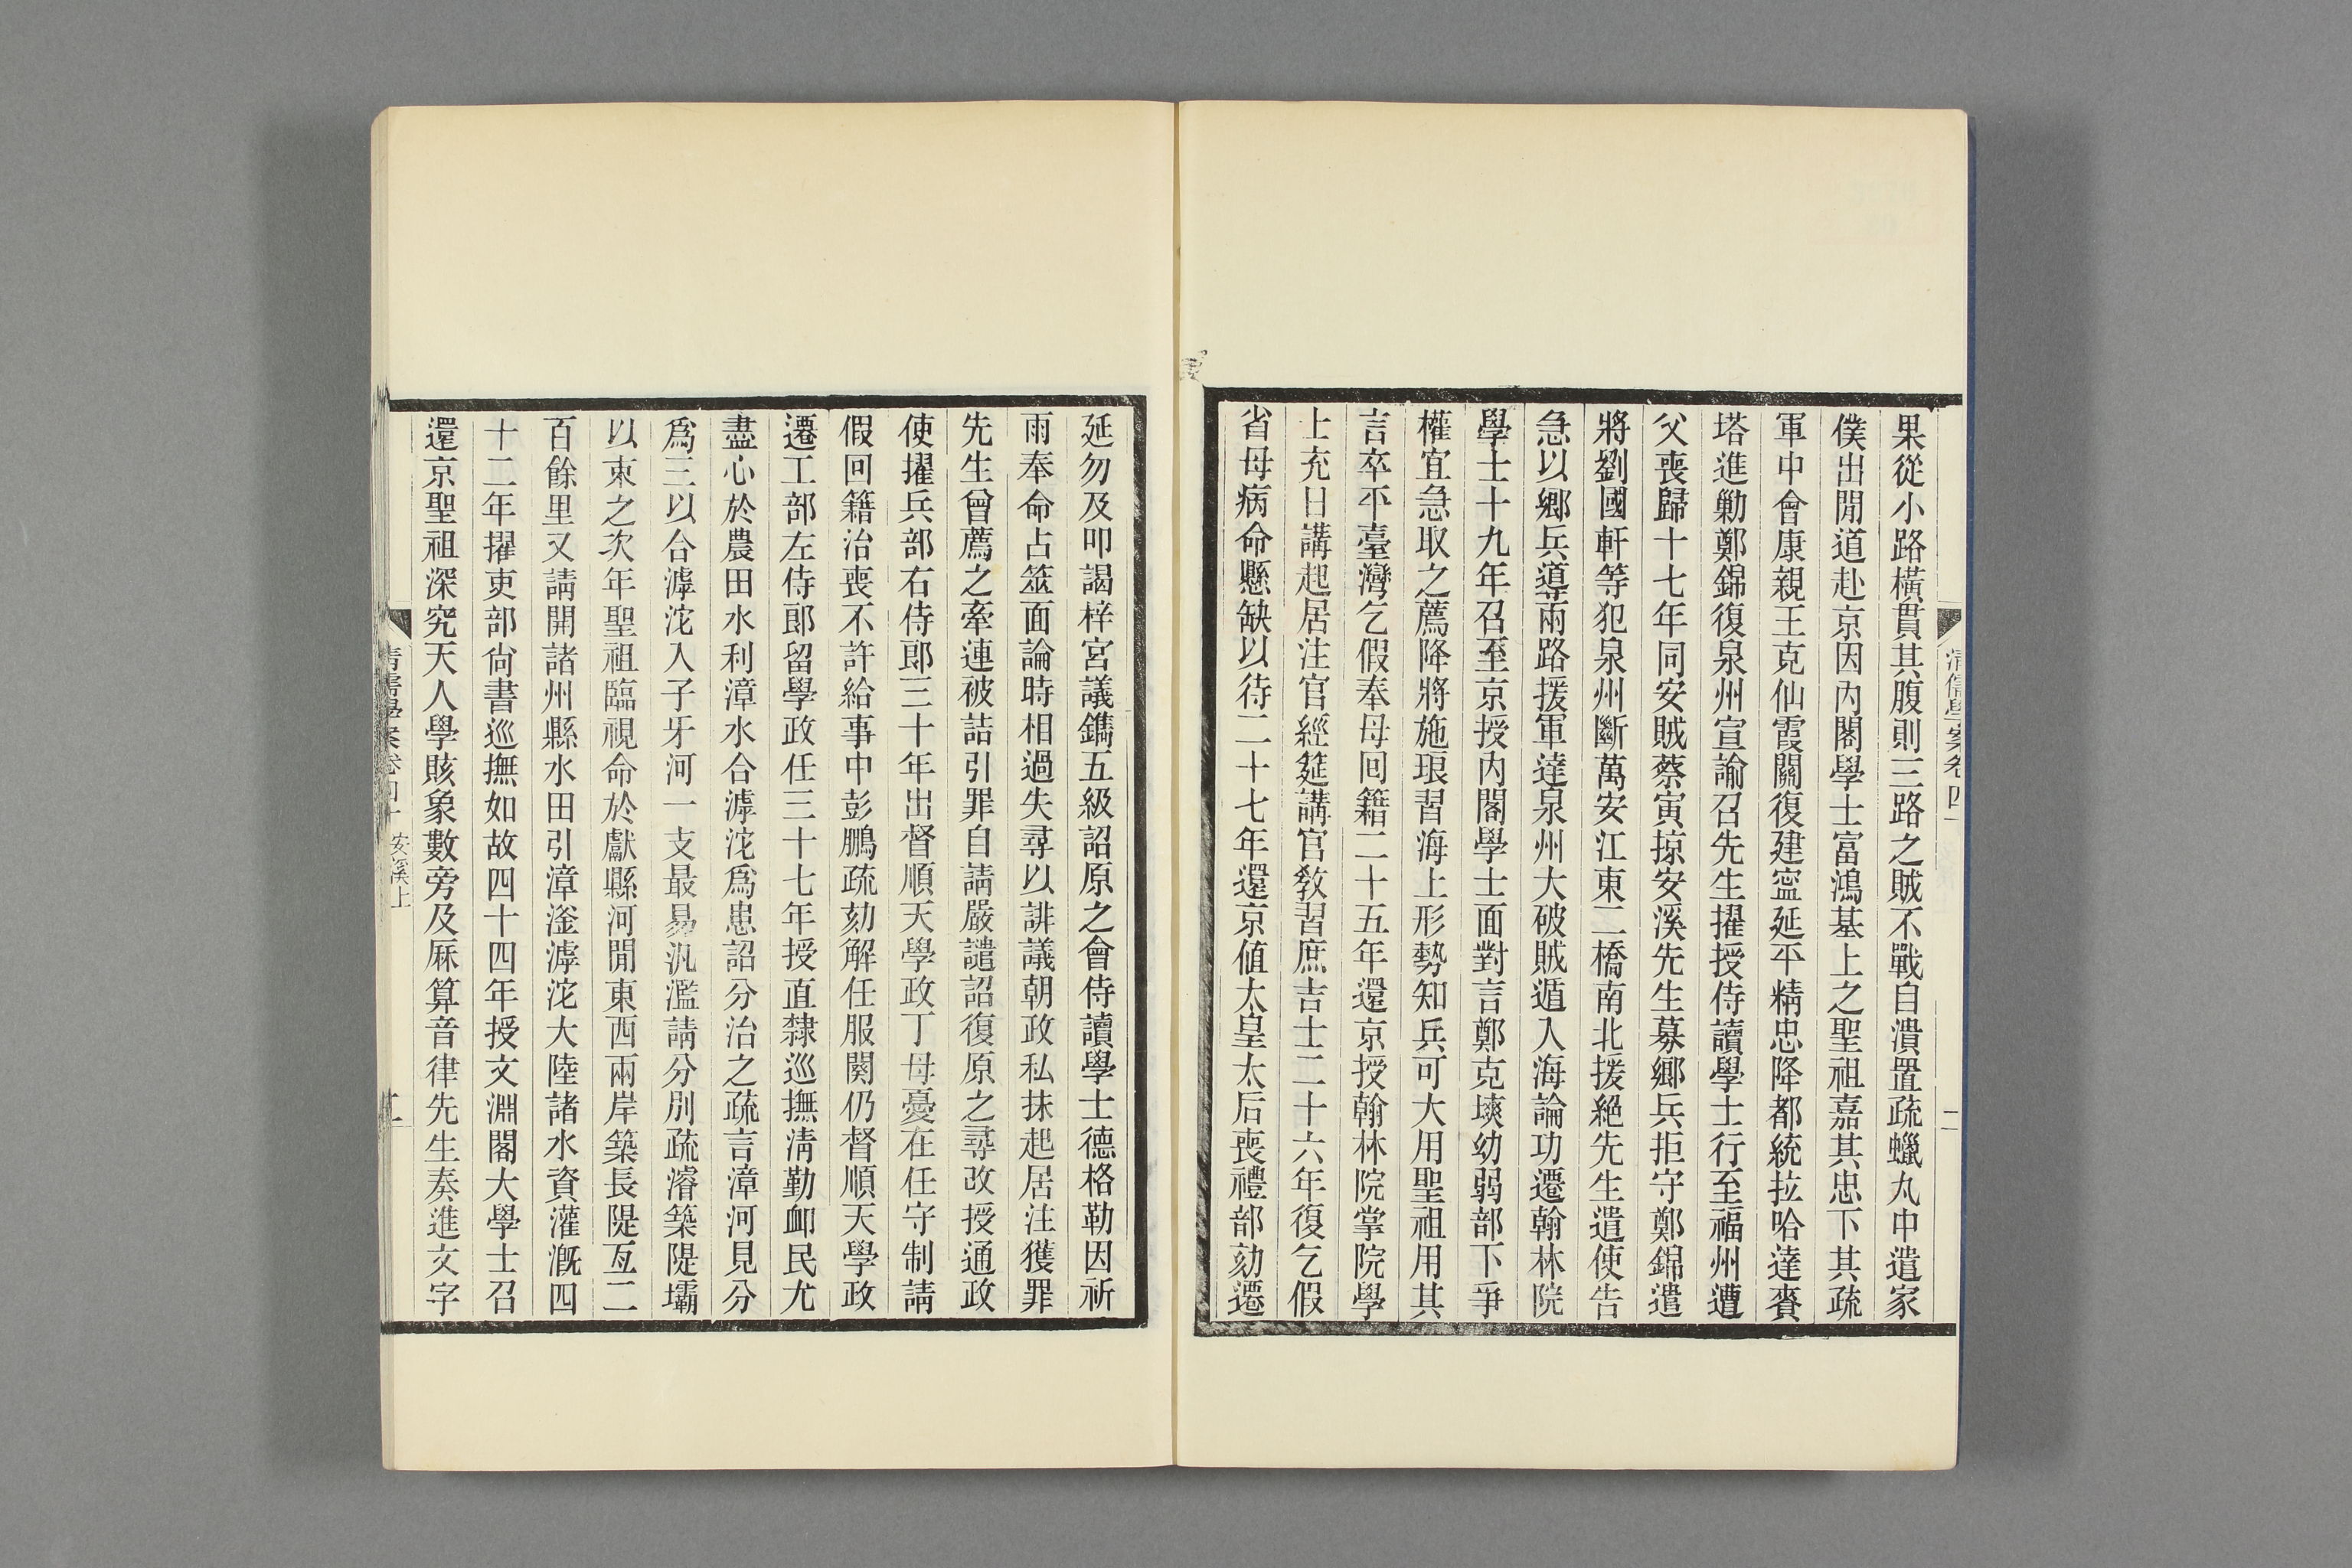 果從小路橫貫其腹則三路之賊不戰自潰置疏蠟丸中遣家
僕出閒道赴京因內閣學士富鴻基上之聖祖嘉其忠下其疏
軍中會康親王克仙霞關復建寍延平精忠降都統拉哈達賚
塔進勦鄭錦復泉州宣諭召先生擢授侍讀學士行至福州遭
父喪歸十七年同安賊蔡寅掠安溪先生募鄉兵拒守鄭錦遣
將劉國軒等犯泉州斷萬安江東二橋南北援絕先生遣使告
急以鄉兵導兩路援軍達泉州大破賊遁入海論功遷翰林院
學士十九年召至京授內閣學士面對言鄭克塽幼弱部下爭
權宜急取之薦降將施琅習海上形勢知兵可大用聖祖用其
言卒平臺灣乞假奉母回籍二十五年還京授翰林院掌院學
上充日講起居注官經筵講官敎習庶吉士二十六年復乞假
省母病命懸缺以待二十七年還京值太皇太后喪禮部劾遷
延勿及叩謁梓宮議鐫五級詔原之會侍讀學士德格勒因祈
雨奉命占筮面論時相過失尋以誹議朝政私抹起居注獲罪
先生曾薦之牽連被詰引罪自請嚴譴詔復原之尋改授通政
使擢兵部右侍郎三十年出督順天學政丁母憂在任守制請
假回籍治喪不許給事中彭鵬疏劾解任服闋仍督順天學政
遷工部左侍郎留學政任三十七年授直隸巡撫淸勤卹民尤
盡心於農田水利漳水合滹沱爲患詔分治之疏言漳河見分
爲三以合滹沱入子牙河一支最易汎濫請分別疏濬築隄壩
以束之次年聖祖臨視命於獻縣河閒東西兩岸築長隄亙二
百餘里又請開諸州縣水田引漳滏滹沱大陸諸水資灌漑四
十二年擢吏部尙書巡撫如故四十四年授文淵閣大學士召
還京聖祖深究天人學賅象數旁及厤算音律先生奏進文字
清儒學案卷四十 安溪上